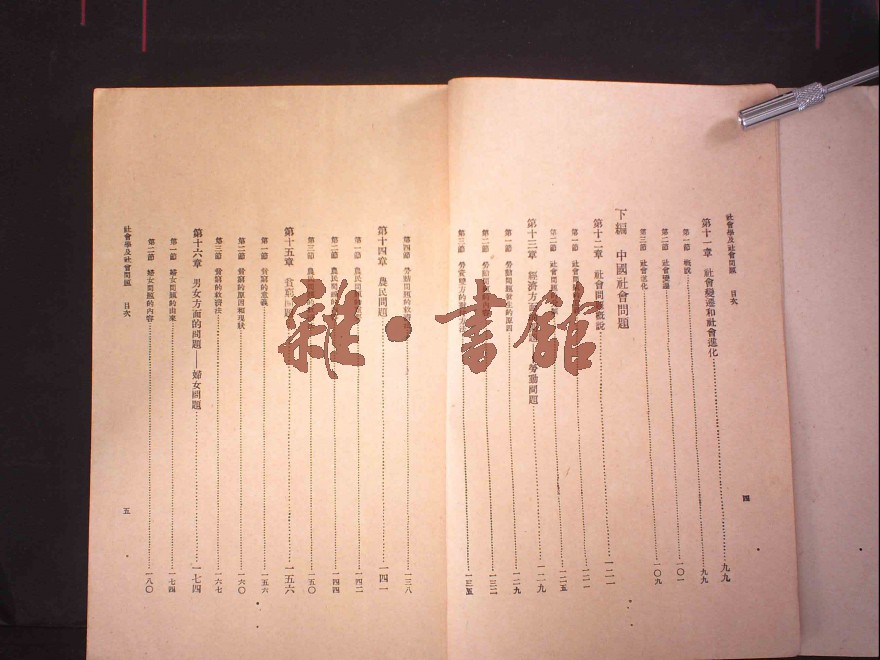 社會學及社會問題 目次
第十一章 社會變遷和社會進化……九九
第一節 概說……九九
第二節 社會變遷……一〇一
第三節 社會進化……一〇九
下編 中國社會問題
第十二章 社會問題概說……一二一
第一節 社會問題……一二一
第二節 社會問題……一二五
第十三章 經濟方面的問題 勞動問題……一二九
第一節 勞動問題發生的原因……一二九
第二節 勞動問題的內容……一三二
第三節 勞資雙方的……一三五
四
第四節 勞動問題的救濟……一三八
第十四章 農民問題……一四一
第一節 農民問題的……一四二
第二節 農民問題的……一四四
第三節 農民問題……一五〇
第十五章 貧窮問題……一五六
第一節 貧窮的意義……一五六
第二節 貧窮的原因和現狀……一六〇
第三節 貧窮的救濟法……一六七
第十六章 男女方面的問題——婦女問題……一七四
第一節 婦女問題的由來……一七四
第二節 婦女問題的內容……一八〇
社會學及社會問題 目次
五
雜·書館